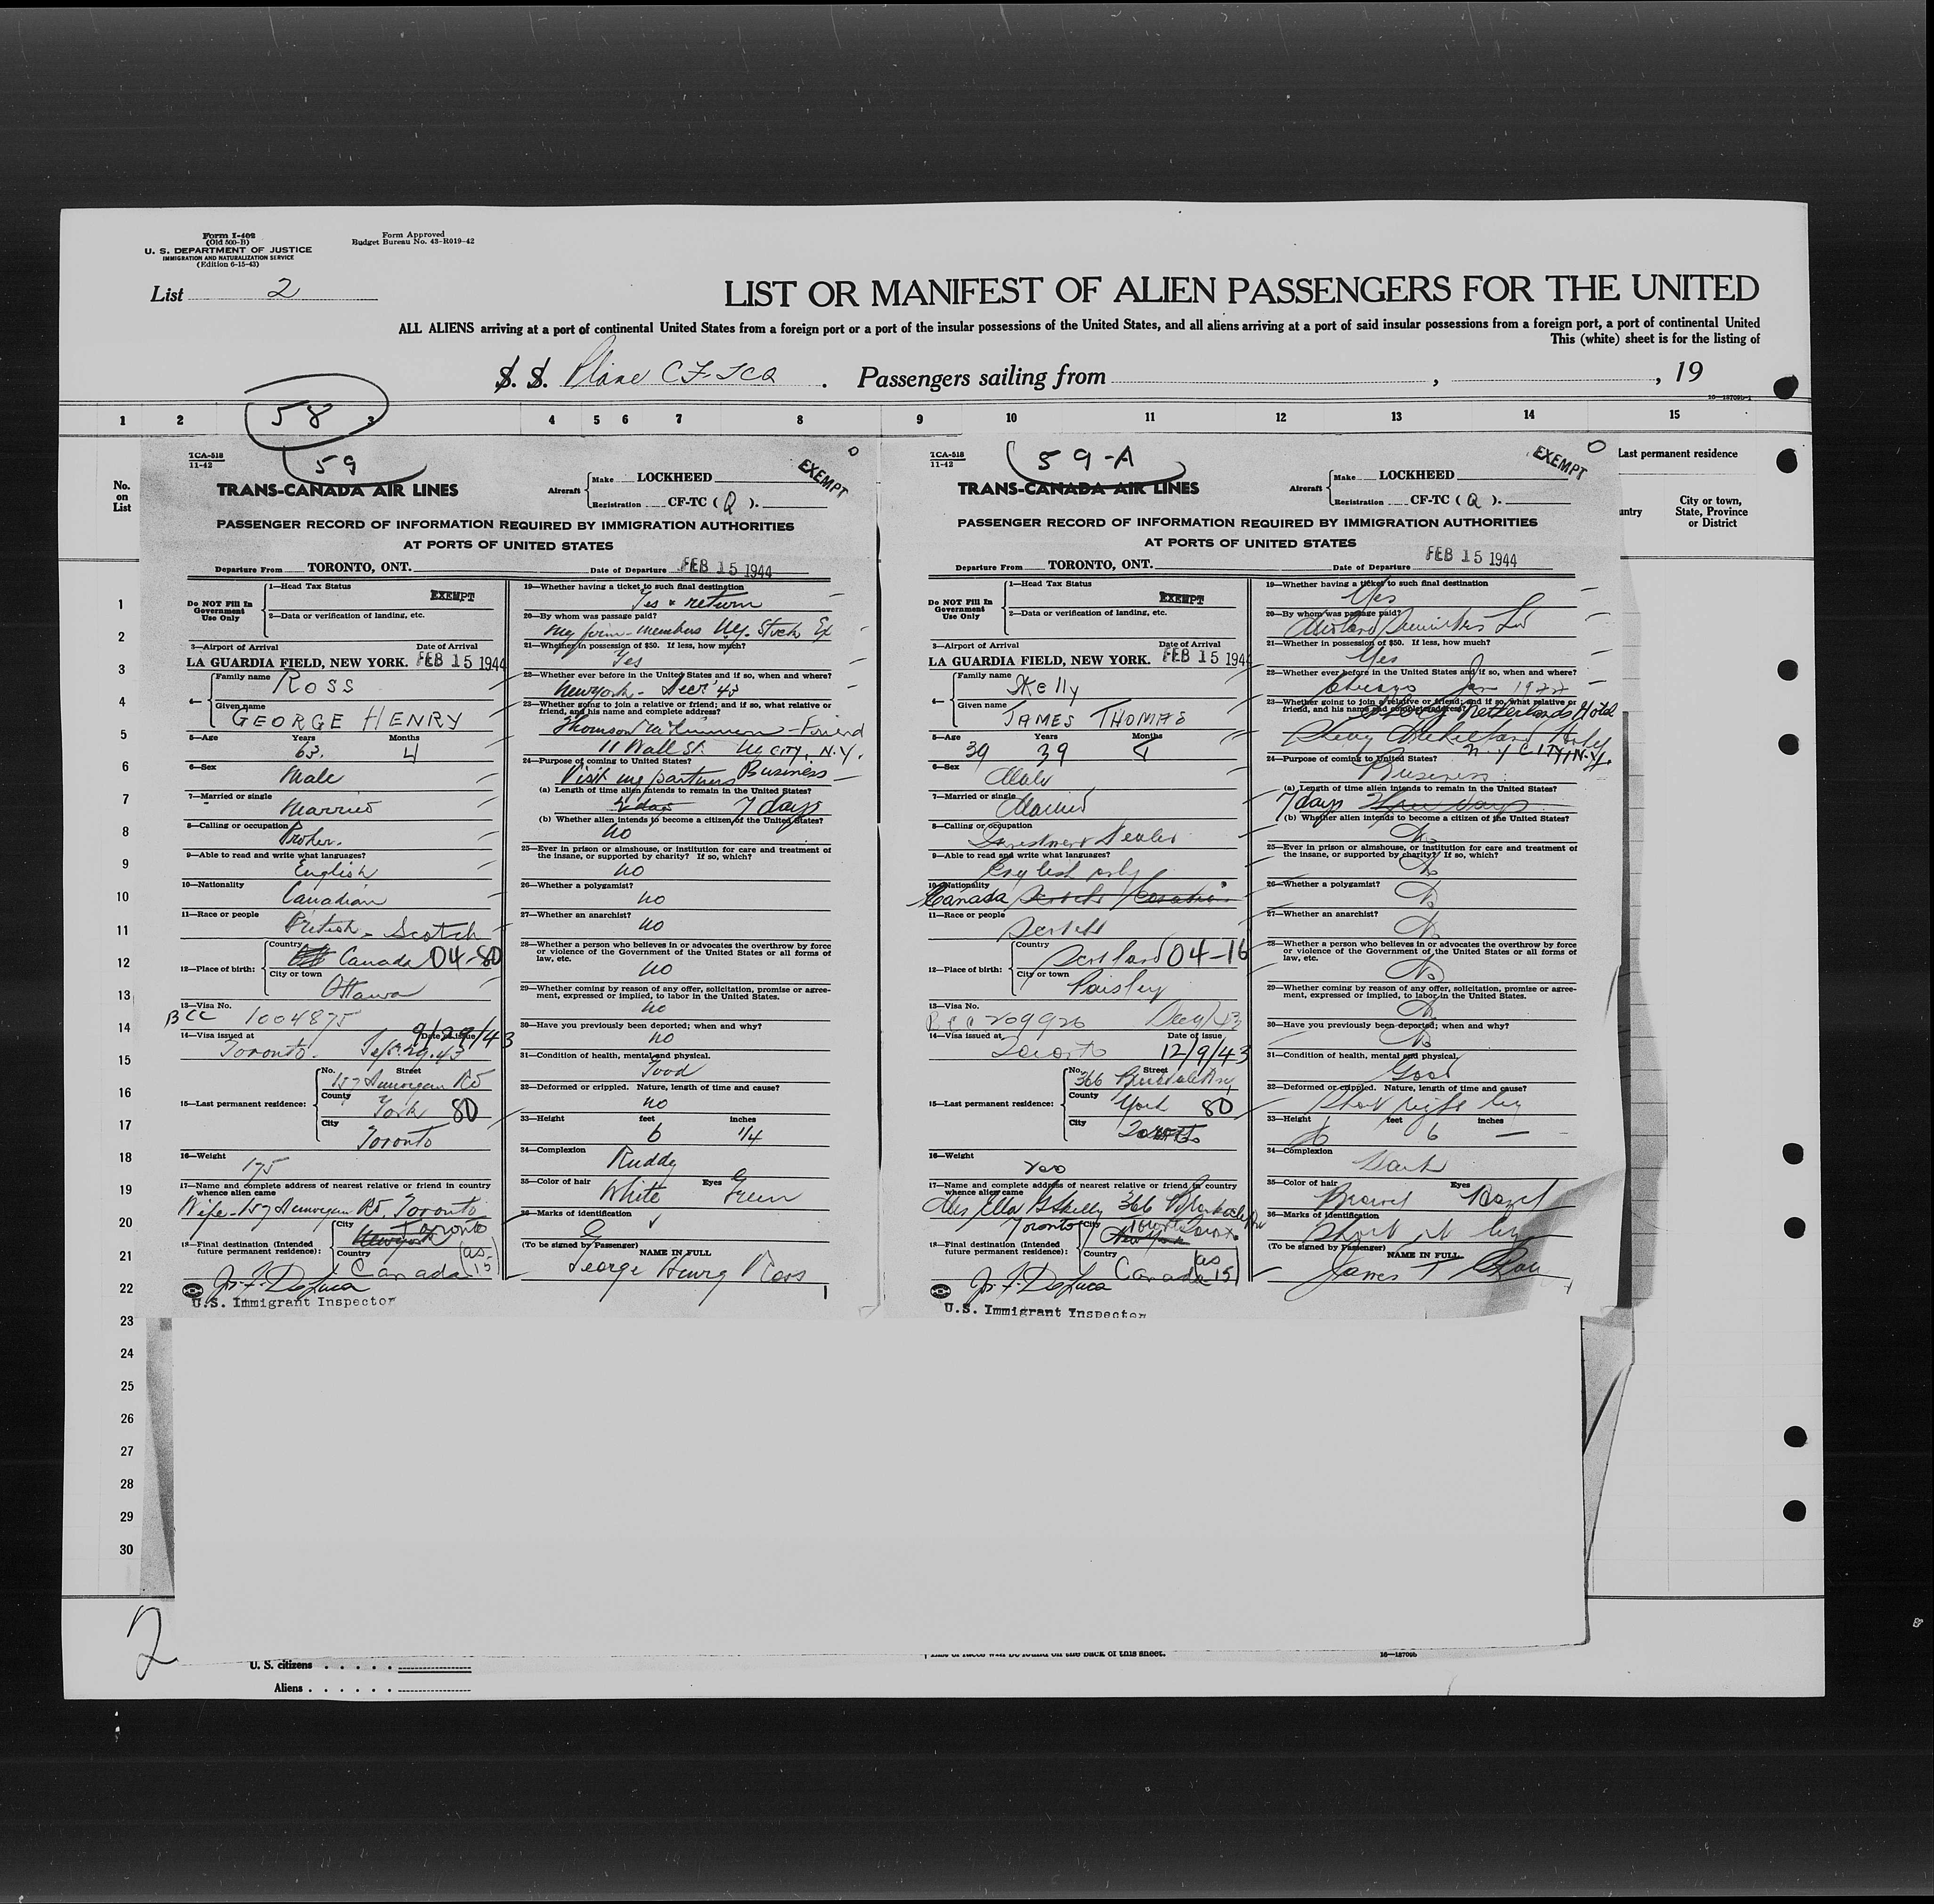 Form I-402
(Old 500-B)
U. S. DEPARTMENT OF JUSTICE
IMMIGRATION AND NATURALIZATION SERVICE
(Edition 6-15-43)
Form Approved
Budget Bureau No. 43-R019-42
List 2
LIST OR MANIFEST OF ALIEN PASSENGERS FOR THE UNITED
ALL ALIENS arriving at a port of continental United States from a foreign port or a port of the insular possessions of the United States, and all aliens arriving at a port of said insular possessions from a foreign port, a port of continental United
This (white) sheet is for the listing of
S. S. Plane CF-TCQ . Passengers sailing from , , 19
1 2 3 4 5 6 7 8 9 10 11 12 13 14 15
58
No.
on
List
Last permanent residence
untry
City or town,
State, Province
or District
TCA-518
11-42
59
EXEMPT
TRANS-CANADA AIR LINES
Aircraft
Make LOCKHEED
Registration CF-TC (Q).
PASSENGER RECORD OF INFORMATION REQUIRED BY IMMIGRATION AUTHORITIES
AT PORTS OF UNITED STATES
Departure From TORONTO, ONT. Date of Departure FEB 15 1944
Do NOT Fill In
Government
Use Only
1—Head Tax Status EXEMPT
2—Data or verification of landing, etc.
3—Airport of Arrival Date of Arrival
LA GUARDIA FIELD, NEW YORK. FEB 15 1944
4— Family name ROSS
Given name GEORGE HENRY
5—Age Years Months
63. 4
6—Sex
Male
7—Married or single
Married
8—Calling or occupation
Broker.
9—Able to read and write what languages?
English
10—Nationality
Canadian
11—Race or people
British - Scotch
12—Place of birth: Country Canada 04-80
City or town
Ottawa
13—Visa No.
BCC 1004875
14—Visa issued at Date of issue 9/29/43
Toronto. Sept. 29. 43
15—Last permanent residence: No. Street
157 Rd
County York 80
City Toronto
16—Weight
175
17—Name and complete address of nearest relative or friend in country
whence alien came
Wife - 157 Rd. Toronto
18—Final destination (Intended
future permanent residence): City New York Toronto
Country Canada (as 15)
Jos. F. DeLuca
U.S. Immigrant Inspector
19—Whether having a ticket to such final destination
Yes & return
20—By whom was passage paid?
My firm - members N.Y. Stock Ex
21—Whether in possession of $50. If less, how much?
Yes
22—Whether ever before in the United States and if so, when and where?
New York - Dec '43
23—Whether going to join a relative or friend; and if so, what relative or
friend, and his name and complete address?
Thomson McKinnon - Friend
11 Wall St. N.Y. CITY, N.Y.
24—Purpose of coming to United States?
Visit my partners Business
(a) Length of time alien intends to remain in the United States?
2 days 7 days
(b) Whether alien intends to become a citizen of the United States?
no
25—Ever in prison or almshouse, or institution for care and treatment of
the insane, or supported by charity? If so, which?
no
26—Whether a polygamist?
no
27—Whether an anarchist?
no
28—Whether a person who believes in or advocates the overthrow by force
or violence of the Government of the United States or all forms of
law, etc.
no
29—Whether coming by reason of any offer, solicitation, promise or agree-
ment, expressed or implied, to labor in the United States.
no
30—Have you previously been deported; when and why?
no
31—Condition of health, mental and physical.
Good
32—Deformed or crippled. Nature, length of time and cause?
no
33—Height feet inches
6 1/4
34—Complexion
Ruddy
35—Color of hair Eyes
White Green
36—Marks of identification
(To be signed by Passenger) NAME IN FULL
George Henry Ross
TCA-518
11-42
59-A
EXEMPT
TRANS-CANADA AIR LINES
Aircraft
Make LOCKHEED
Registration CF-TC (Q).
PASSENGER RECORD OF INFORMATION REQUIRED BY IMMIGRATION AUTHORITIES
AT PORTS OF UNITED STATES
Departure From TORONTO, ONT. Date of Departure FEB 15 1944
Do NOT Fill In
Government
Use Only
1—Head Tax Status EXEMPT
2—Data or verification of landing, etc.
3—Airport of Arrival Date of Arrival
LA GUARDIA FIELD, NEW YORK. FEB 15 1944
4— Family name Skelly
Given name JAMES THOMAS
5—Age Years Months
39 39 4
6—Sex
Male
7—Married or single
Married
8—Calling or occupation
Investment Dealer
9—Able to read and write what languages?
English only
10—Nationality
Canada Scotch Canadian
11—Race or people
Scotch
12—Place of birth: Country Scotland 04-16
City or town
Paisley
13—Visa No.
BCC 209920 Dec 9/43
14—Visa issued at Date of issue
Toronto 12/9/43
15—Last permanent residence: No. Street
366
County York 80
City Toronto
16—Weight
200
17—Name and complete address of nearest relative or friend in country
whence alien came
Mrs Ella Skelly 366
Toronto
18—Final destination (Intended
future permanent residence): City New York Toronto
Country Canada (as 15)
Jos. F. DeLuca
U.S. Immigrant Inspector
19—Whether having a ticket to such final destination
Yes
20—By whom was passage paid?
Midland Securities Ltd
21—Whether in possession of $50. If less, how much?
Yes
22—Whether ever before in the United States and if so, when and where?
Chicago Jan
23—Whether going to join a relative or friend; and if so, what relative or
friend, and his name and complete address?
Sherry Netherlands Hotel
Sherry Netherland Hotel
N.Y. CITY, N.Y.
24—Purpose of coming to United States?
Business
(a) Length of time alien intends to remain in the United States?
7 days Three days
(b) Whether alien intends to become a citizen of the United States?
No
25—Ever in prison or almshouse, or institution for care and treatment of
the insane, or supported by charity? If so, which?
No
26—Whether a polygamist?
No
27—Whether an anarchist?
No
28—Whether a person who believes in or advocates the overthrow by force
or violence of the Government of the United States or all forms of
law, etc.
No
29—Whether coming by reason of any offer, solicitation, promise or agree-
ment, expressed or implied, to labor in the United States.
No
30—Have you previously been deported; when and why?
No
31—Condition of health, mental and physical.
Good
32—Deformed or crippled. Nature, length of time and cause?
Short right leg
33—Height feet inches
6 6 —
34—Complexion
Dark
35—Color of hair Eyes
Brown Hazel
36—Marks of identification
Short rt leg
(To be signed by Passenger) NAME IN FULL
James T
1
2
3
4
5
6
7
8
9
10
11
12
13
14
15
16
17
18
19
20
21
22
23
24
25
26
27
28
29
30
2
U. S. citizens
Aliens
List of races will be found on the back of this sheet.
16—18709b